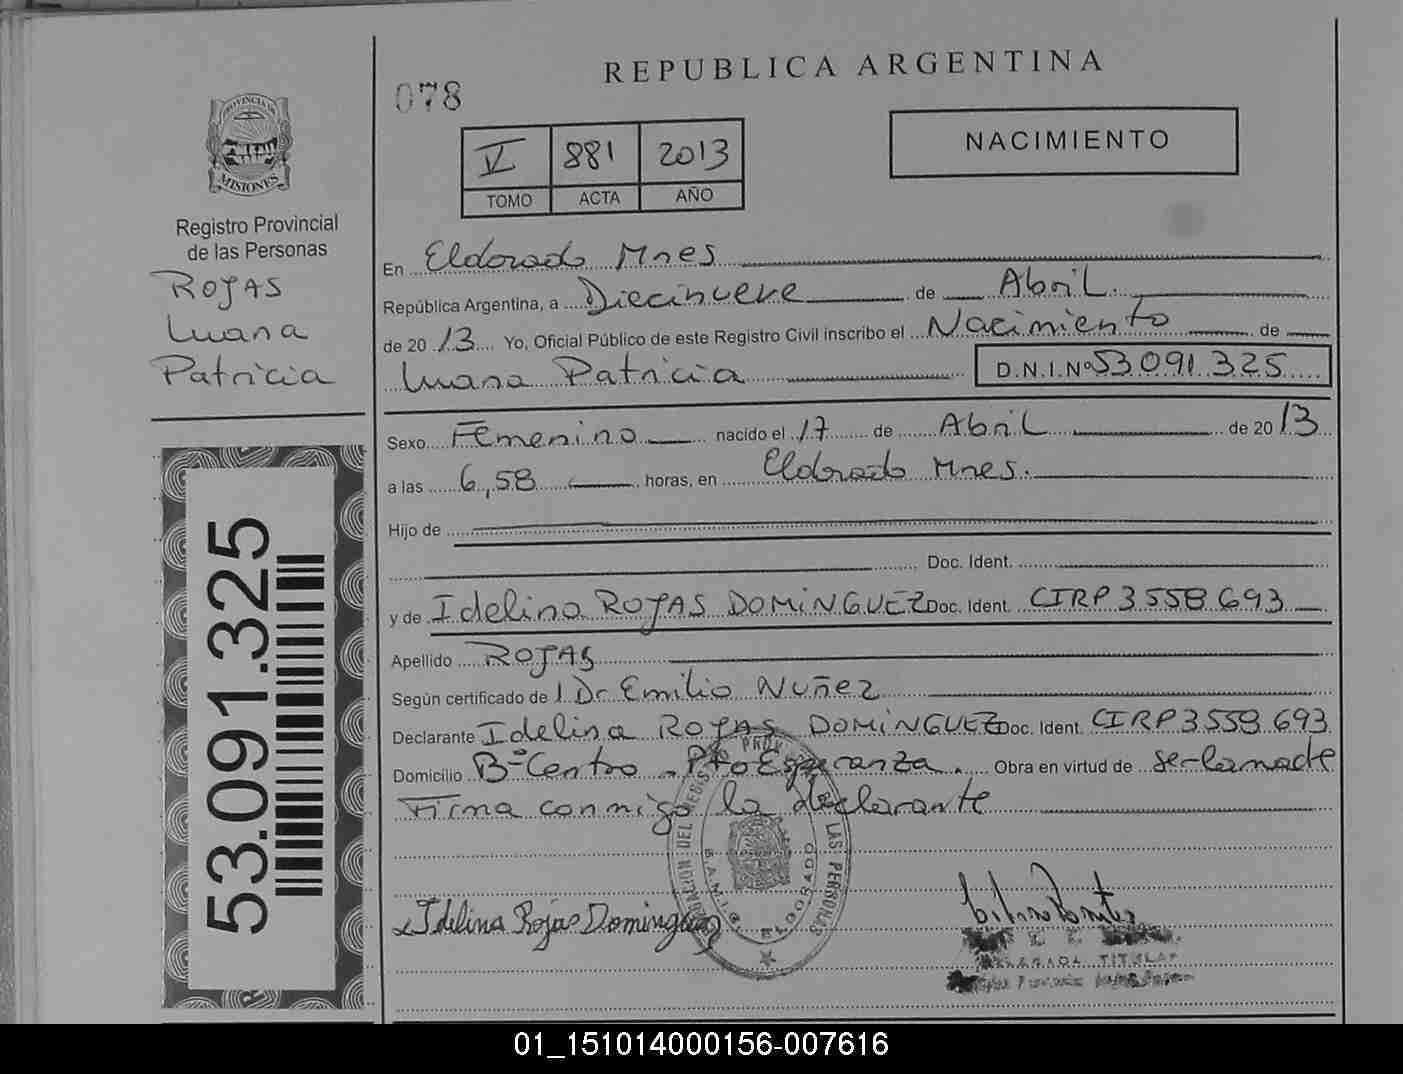 REPUBLICA ARGENTINA
078
NACIMIENTO
V 881 2013
TOMO ACTA AÑO
PROVINCIA DE
MISIONES
Registro Provincial
de las Personas
ROJAS
Luana
Patricia
53.091.325
En Eldorado Mnes
República Argentina, a Diecinueve de Abril.
de 2013 Yo, Oficial Público de este Registro Civil inscribo el Nacimiento de
Luana Patricia D.N.I.Nº 53.091.325
Sexo Femenino nacido el 17 de Abril de 2013
a las 6,58 horas, en Eldorado Mnes.
Hijo de
Doc. Ident.
y de Idelina ROJAS DOMINGUEZ Doc. Ident. CIRP 3558693
Apellido ROJAS
Según certificado de Dr Emilio Nuñez
Declarante Idelina ROJAS DOMINGUEZ Doc. Ident. CIRP 3558.693
Domicilio Bº Centro Pto Esperanza. Obra en virtud de ser la madre
Firma conmigo la declarante
Idelina Rojas Dominguez
LAS PERSONAS
ELDORADO
TITULAR
01_151014000156-007616